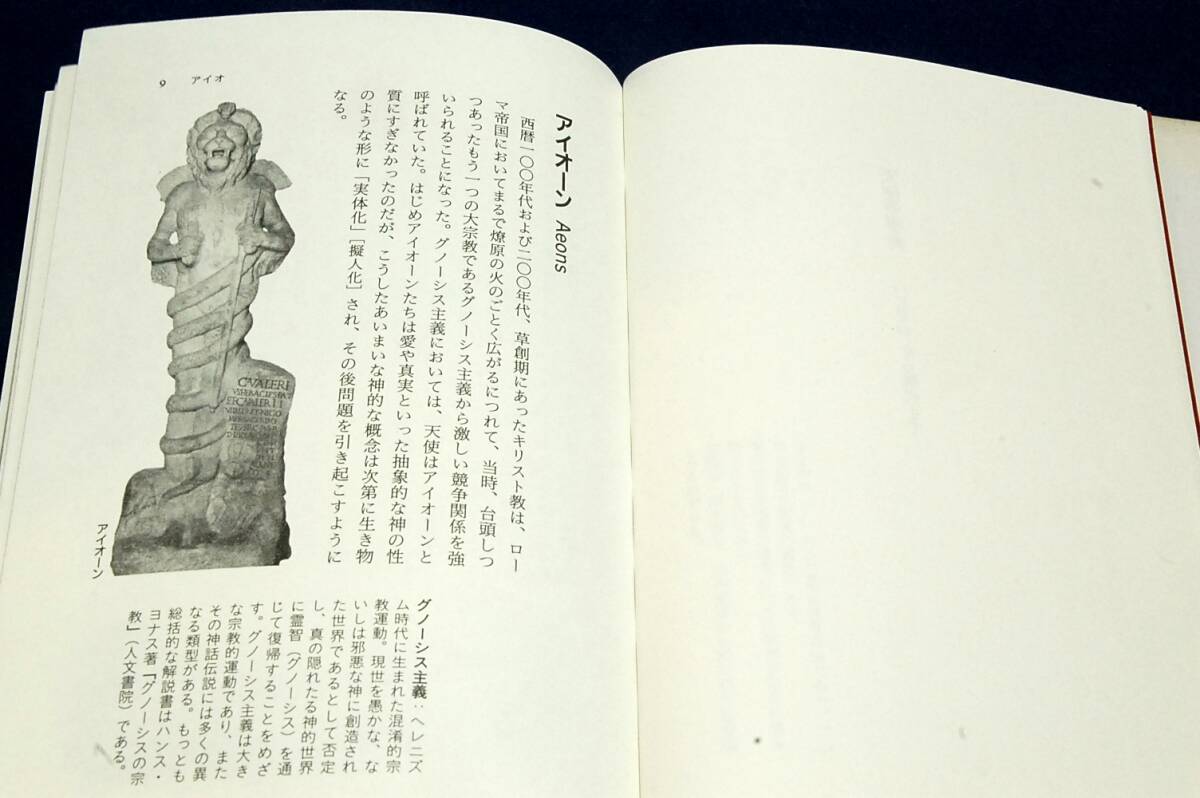 9 アイオ
アイオーン Aeons
西暦一〇〇年代および二〇〇年代、草創期にあったキリスト教は、ロー
マ帝国においてまるで燎原の火のごとく広がるにつれて、当時、台頭しつ
つあったもう一つの大宗教であるグノーシス主義から激しい競争関係を強
いられることになった。グノーシス主義においては、天使はアイオーンと
呼ばれていた。はじめアイオーンたちは愛や真実といった抽象的な神の性
質にすぎなかったのだが、こうしたあいまいな神的な概念は次第に生き物
のような形に「実体化」[擬人化]され、その後問題を引き起こすように
なる。
C·VALERI
アイオーン
グノーシス主義:ヘレニズ
ム時代に生まれた混淆的宗
教運動。現世を愚かな、な
いしは邪悪な神に創造され
た世界であるとして否定
し、真の隠れたる神的世界
に霊智(グノーシス)を通
じて復帰することをめざ
す。グノーシス主義は大き
な宗教的運動であり、また
その神話伝説には多くの異
なる類型がある。もっとも
総括的な解説書はハンス・
ヨナス著「グノーシスの宗
教」(人文書院)である。